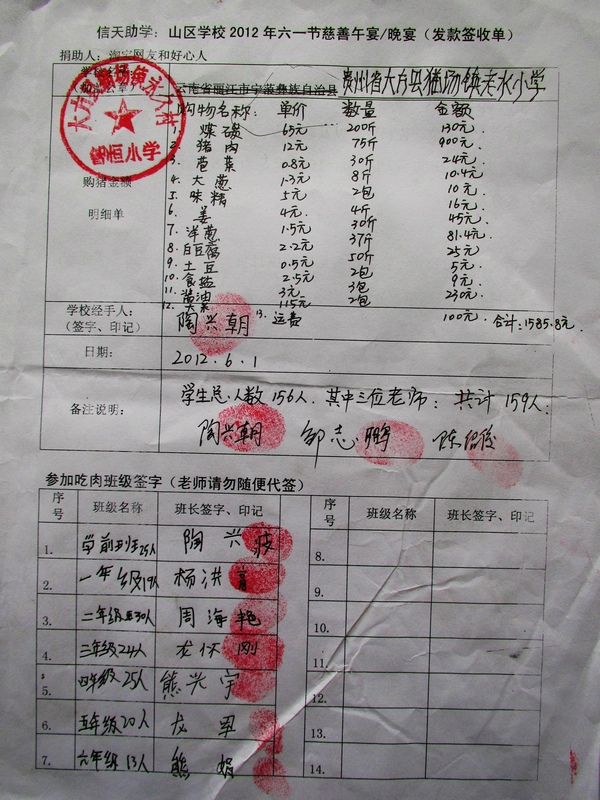 信天助学：山区学校2012年六一节慈善午宴/晚宴（发款签收单）
捐助人：淘宝网友和好心人
云南省丽江市宁蒗彝族自治县 贵州省大方县猫场镇永水小学
购物名称: 单价 数量 金额
1. 煤碳 65元 200斤 130元
2. 猪肉 12元 75斤 900元
3. 苞菜 0.8元 30斤 24元
4. 大葱 1.3元 8斤 10.4元
5. 味精 5元 2包 10元
6. 姜 4元 4斤 16元
7. 洋葱 1.5元 30斤 45元
8. 白豆腐 2.2元 37斤 81.4元
9. 土豆 0.5元 50斤 25元
10. 食盐 2.5元 2包 5元
11. 酱油 3元 3包 9元
12. 115元 2包 230元
13. 运费 100元 合计:1585.8元
购猪金额
明细单
学校经手人：
（签字、印记）
陶兴朝
日期：
2012.6.1
备注说明：
学生总人数156人,其中三位老师:共计159人.
陶兴朝 邹志鹏 陈绍俊
参加吃肉班级签字（老师请勿随便代签）
序号 班级名称 班长签字、印记 序号 班级名称 班长签字、印记
1. 学前班25人 陶兴 8.
2. 一年级19人 杨洪 9.
3. 二年级30人 周海艳 10.
4. 三年级24人 龙怀刚 11.
5. 四年级25人 熊兴宇 12.
6. 五年级20人 龙军 13.
7. 六年级13人 熊娟 14.